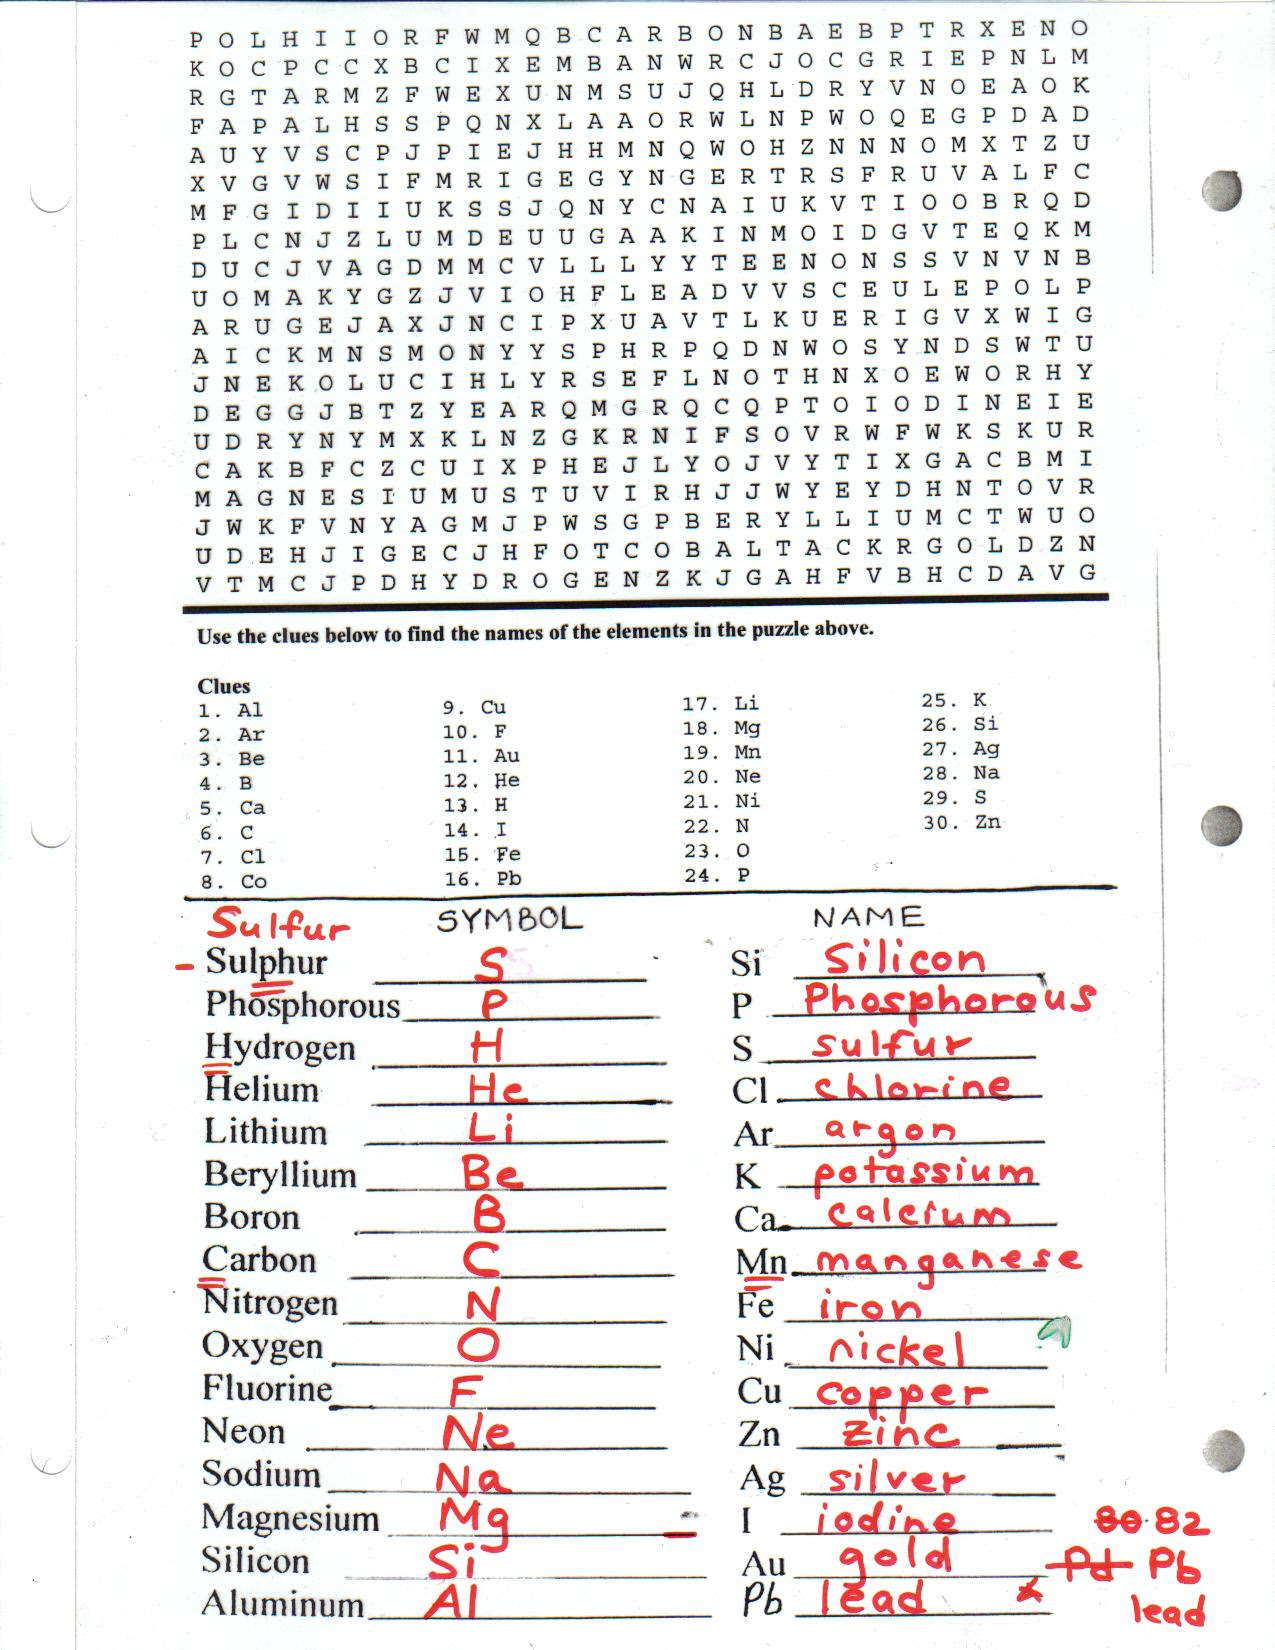 P O L H I I O R F W M Q B C A R B O N B A E B P T R X E N O
K O C P C C X B C I X E M B A N W R C J O C G R I E P N L M
R G T A R M Z F W E X U N M S U J Q H L D R Y V N O E A O K
F A P A L H S S P Q N X L A A O R W L N P W O Q E G P D A D
A U Y V S C P J P I E J H H M N Q W O H Z N N N O M X T Z U
X V G V W S I F M R I G E G Y N G E R T R S F R U V A L F C
M F G I D I I U K S S J Q N Y C N A I U K V T I O O B R Q D
P L C N J Z L U M D E U U G A A K I N M O I D G V T E Q K M
D U C J V A G D M M C V L L L Y Y T E E N O N S S V N V N B
U O M A K Y G Z J V I O H F L E A D V V S C E U L E P O L P
A R U G E J A X J N C I P X U A V T L K U E R I G V X W I G
A I C K M N S M O N Y Y S P H R P Q D N W O S Y N D S W T U
J N E K O L U C I H L Y R S E F L N O T H N X O E W O R H Y
D E G G J B T Z Y E A R Q M G R Q C Q P T O I O D I N E I E
U D R Y N Y M X K L N Z G K R N I F S O V R W F W K S K U R
C A K B F C Z C U I X P H E J L Y O J V Y T I X G A C B M I
M A G N E S I U M U S T U V I R H J J W Y E Y D H N T O V R
J W K F V N Y A G M J P W S G P B E R Y L L I U M C T W U O
U D E H J I G E C J H F O T C O B A L T A C K R G O L D Z N
V T M C J P D H Y D R O G E N Z K J G A H F V B H C D A V G
Use the clues below to find the names of the elements in the puzzle above.
Clues
1. Al
2. Ar
3. Be
4. B
5. Ca
6. C
7. Cl
8. Co
9. Cu
10. F
11. Au
12. He
13. H
14. I
15. Fe
16. Pb
17. Li
18. Mg
19. Mn
20. Ne
21. Ni
22. N
23. O
24. P
25. K
26. Si
27. Ag
28. Na
29. S
30. Zn
Sulfur SYMBOL
- Sulphur S
Phosphorous P
Hydrogen H
Helium He
Lithium Li
Beryllium Be
Boron B
Carbon C
Nitrogen N
Oxygen O
Fluorine F
Neon Ne
Sodium Na
Magnesium Mg
Silicon Si
Aluminum Al
NAME
Si Silicon
P Phosphorous
S sulfur
Cl chlorine
Ar argon
K potassium
Ca calcium
Mn manganese
Fe iron
Ni nickel
Cu copper
Zn zinc
Ag silver
I iodine 80 82
Au gold Pd Pb
Pb lead lead